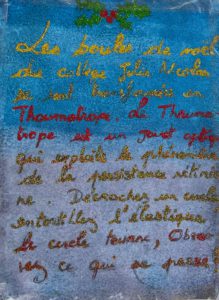 Les boules de noël
du collège Jules
se sont transformées en
Thaumatrope. Le Thauma-
trope est un jouet optique
qui exploite le phénomène
de la persistance rétinien-
ne. Décrochez un cercle
entortillez l'élastique
le cercle tourne, Obser-
vez ce qui se passe!